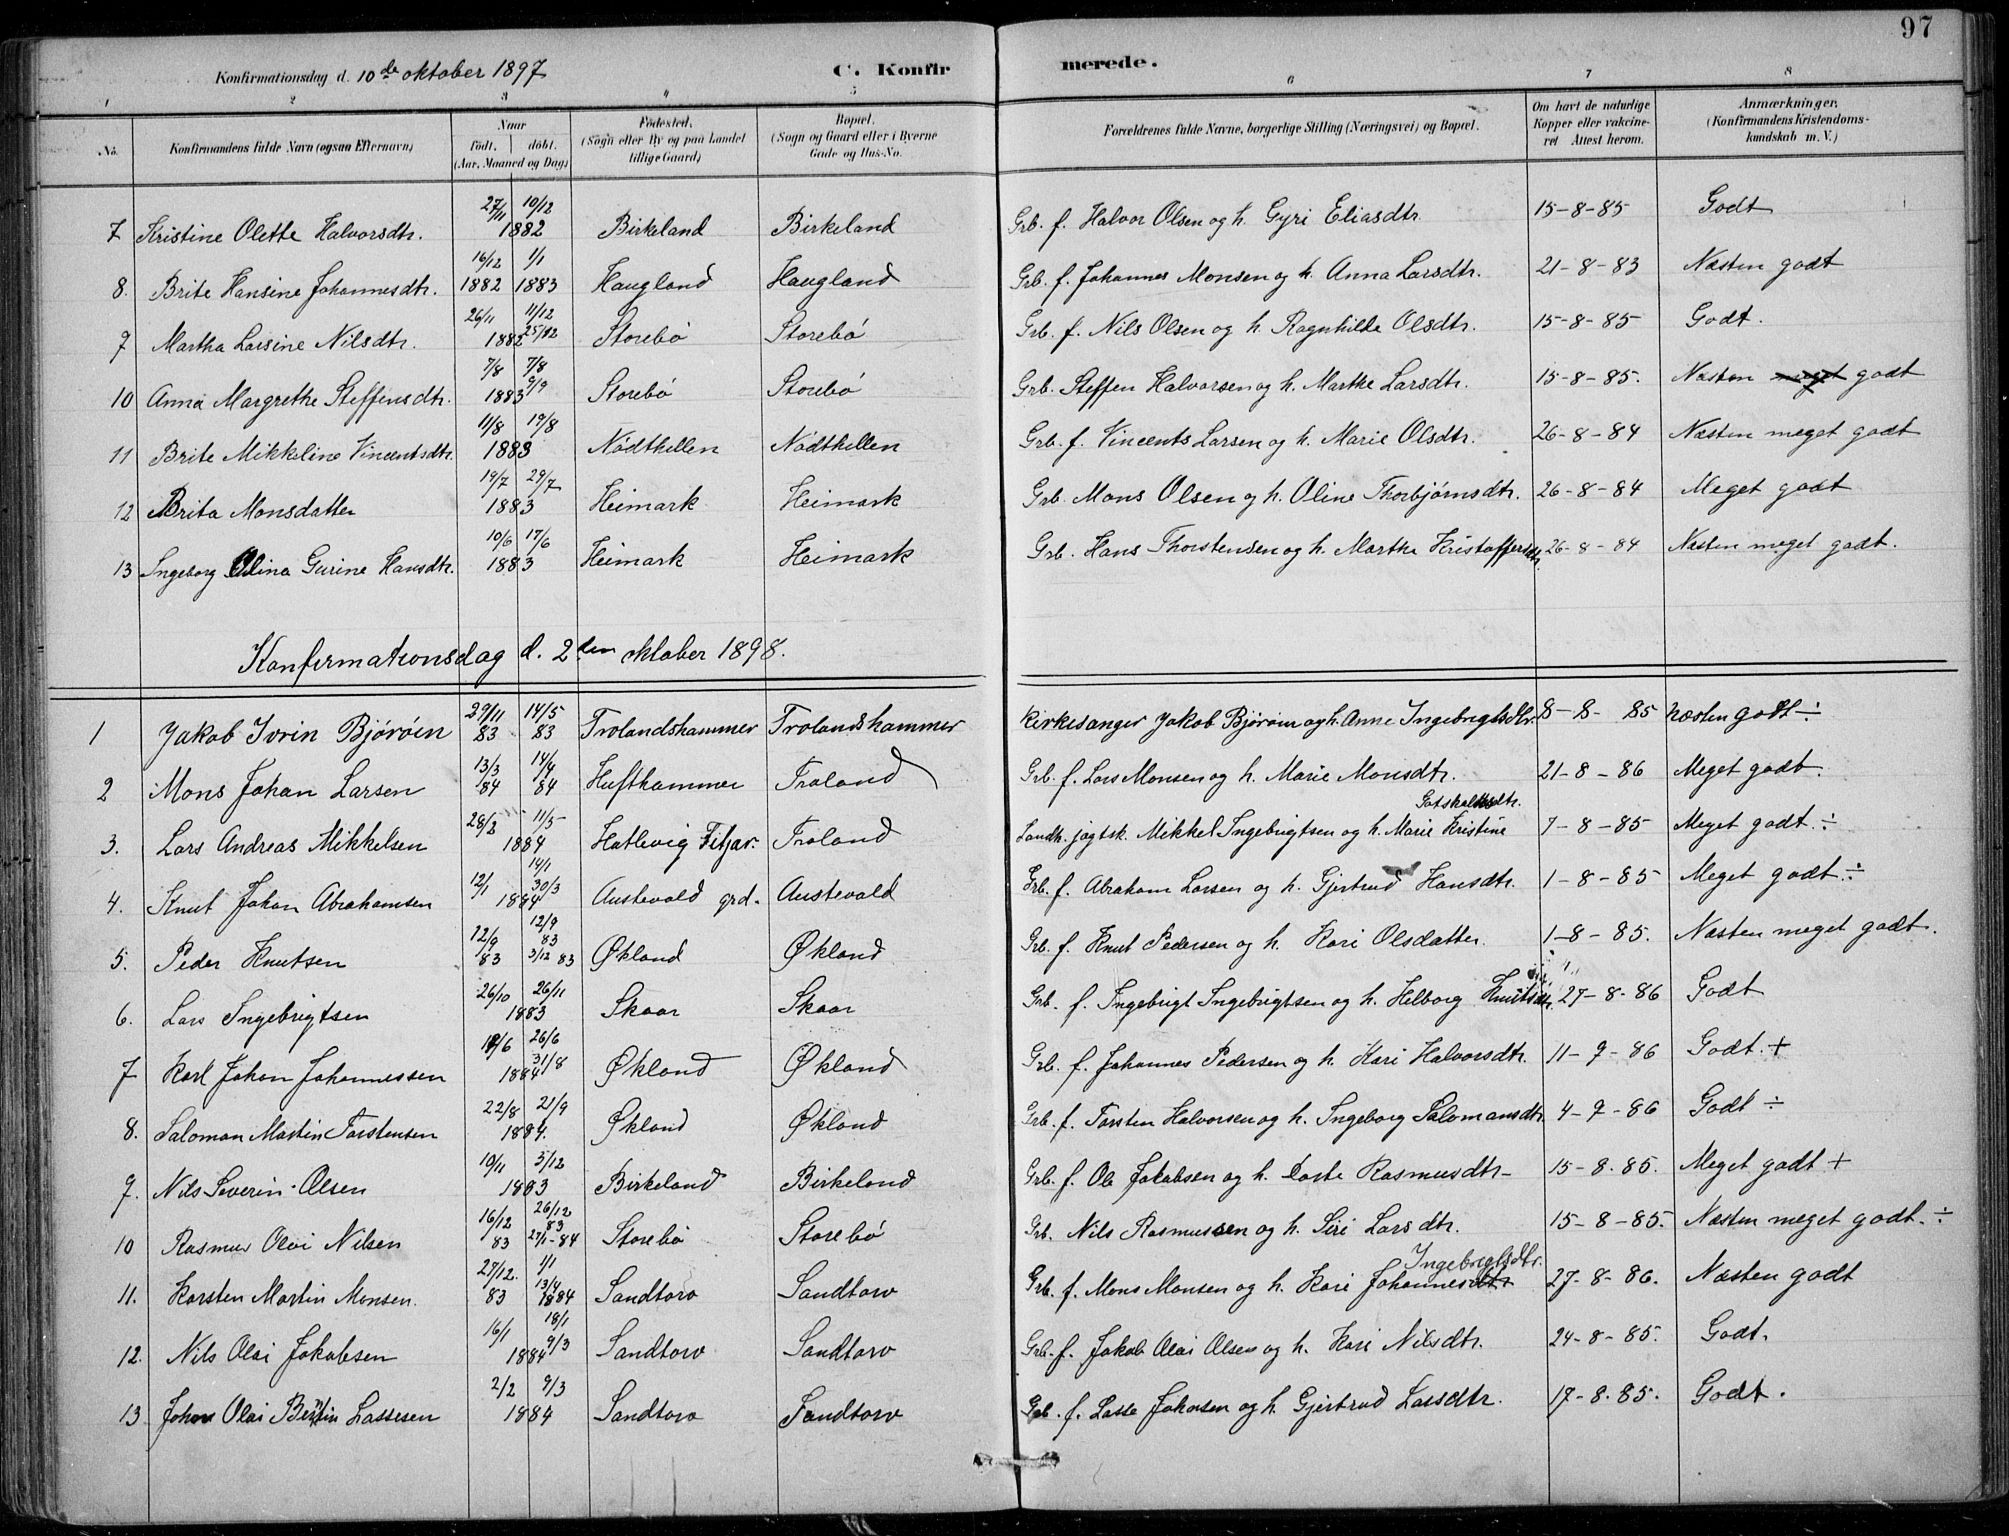 97
Konfirmationsdag d. 10de oktober 1897
C. Konfir merede.
1 2 3 4 5 6 7 8
No. Konfirmandens fulde Navn (ogsaa Efternavn) Naar født. døbt. (Aar, Maaned og Dag) Fødested. (Sogn eller By og paa Landet tillige Gaard) Bopæl. (Sogn og Gaard eller i Byerne Gade og Hus-No. Forældrenes fulde Navne, borgerlige Stilling (Næringsvei) og Bopæl. Om havt de naturlige Kopper eller vakcineret Attest herom. Anmærkninger. (Konfirmandens Kristendomskundskab m. V.)
7 Kristine Olette Halvorsdtr. 27/11 10/12 1882 Birkeland Birkeland Grb. f. Halvor Olsen og h. Gyri Eliasdtr. 15-8-85 Godt
8. Brite Hansine Johannesdtr. 16/12 1882 1/1 1883 Haugland Haugland Grb. f. Johannes Monsen og h. Anna Larsdtr. 21-8-83 Næsten godt
9 Martha Larsine Nilsdtr. 26/11 11/12 1882 25/12 Storebø Storebø Grb. f. Nils Olsen og h. Ragnhilde Olsdtr. 15-8-85 Godt.
10 Anna Margrethe Steffensdtr. 7/8 7/8 1883 9/9 Storebø Storebø Grb. Steffen Halvorsen og h. Marthe Larsdtr. 15-8-85. Næsten meget godt
11 Brite Mikkeline Vincentsdtr. 11/8 19/8 1883 Nødthellen Nødthellen Grb. f. Vincents Larsen og h. Marie Olsdtr. 26-8-84 Næsten meget godt
12 Brita Monsdatter 19/7 29/7 1883 Heimark Heimark Grb. Mons Olsen og h. Oline Thorbjørnsdtr. 26-8-84 Meget godt
13 Ingeborg Olina Gurine Hansdtr. 10/6 17/6 1883 Heimark Heimark Grb. Hans Thorstensen og h. Marthe Kristoffersdtr. 26-8-84 Næsten meget godt.
Konfirmationsdag d. 2den oktober 1898.
1 Jakob Ivrin Bjørøen 29/11 83 14/5 83 Trolandshammer Trolandshammer Kirkesanger Jakob Bjørøen og h. Anne Ingebrigtsdtr. 8-8-85 Næsten godt ÷
2 Mons Johan Larsen 13/3 84 14/4 84 Hufthammer Troland Grb. f. Lars Monsen og h. Marie Monsdtr. 21-8-86 Meget godt.
3. Lars Andreas Mikkelsen 28/2 11/5 1884 Hatlevig Fitjar. Troland Landh. jagtsk. Mikkel Ingebrigtsen og h. Marie Kristine Gotskalksdtr. 7-8-85 Meget godt ÷
4. Knut Johan Abrahamsen 12/1 14/1 1884 30/3 Austevold grd. Austevold Grb. f. Abraham Larsen og h. Gjertrud Hansdtr. 1-8-85 Meget godt ÷
5. Peder Knutsen 12/9 83 12/9 83 3/12 83 Økland Økland Grb. f. Knut Pedersen og h. Kari Olsdatter. 1-8-85. Næsten meget godt.
6. Lars Ingebrigtsen 26/10 26/11 1883 Skaar Skaar Grb. f. Ingebrigt Ingebrigtsen og h. Helborg Knutsdtr. 27-8-86 Godt
7 Karl Johan Johannessen 19/6 26/6 1884 31/8 Økland Økland Grb. f. Johannes Pedersen og h. Kari Halvorsdtr. 11-9-86 Godt. +
8. Salomon Martin Torstensen 22/8 21/9 1884. Økland Økland Grb. f. Torsten Halvorsen og h. Ingeborg Salomonsdtr. 4-9-86 Godt ÷
9. Nils Severin Olsen 10/11 3/12 1883 Birkeland Birkeland Grb. f. Ole Jakobsen og h. Dorte Rasmusdtr- 15-8-85. Meget godt +
10 Rasmus Olai Nilsen 16/12 83 26/12 83 27/1-84 Storebø Storebø Grb. Nils Rasmussen og h. Siri Larsdtr. 15-8-85. Næsten meget godt. ÷
11. Karsten Martin Monsen. 27/12. 83 1/1 13/4 1884 Sandtorv Sandtorv Grb. f. Mons Monsen og h. Kari Johannesdtr Ingebrigtsdtr. 27-8-86. Næsten godt
12. Nils Olai Jakobsen 16/1 18/1 1884 9/3 Sandtorv Sandtorv Grb. f. Jakob Olai Olsen og h. Kari Nilsdtr. 24-8-85. Godt.
13 Johan Olai Bertin Lassesen 2/2 9/3 1884 Sandtorv Sandtorv Grb. f. Lasse Johnsen og h. Gjertrud Larsdtr. 17-8-85. Godt.